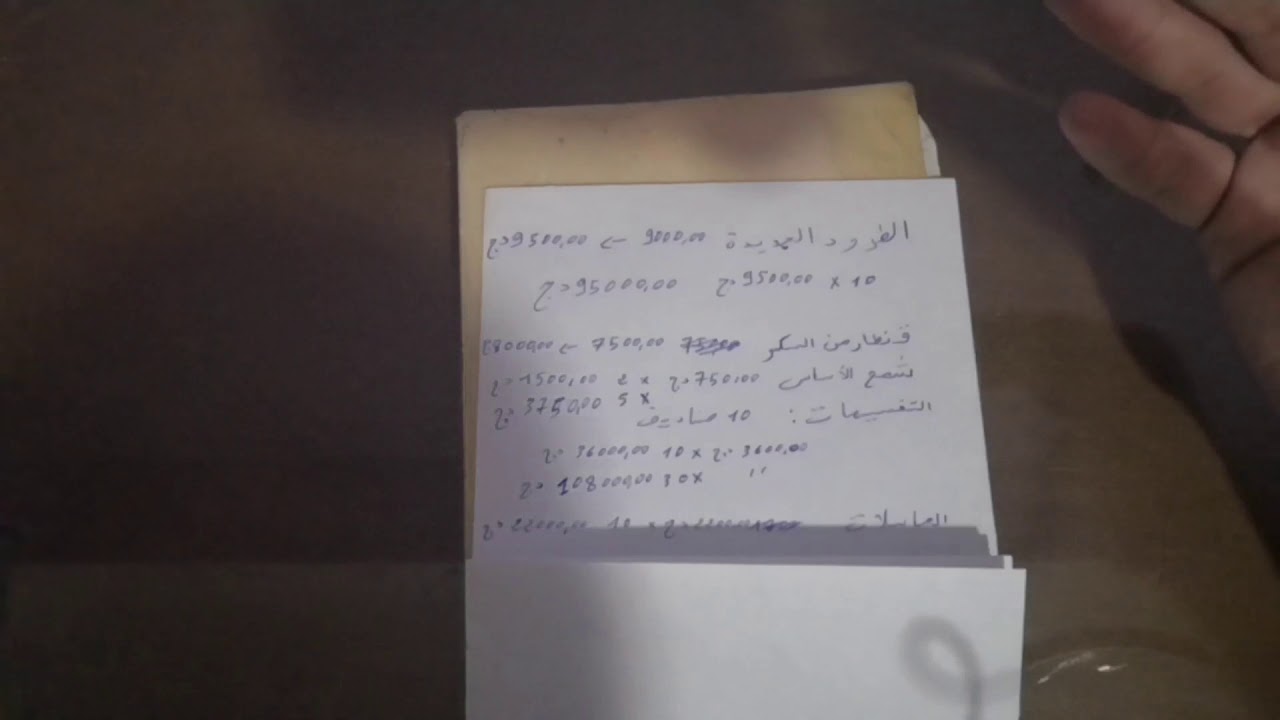 الطرود الجديدة 9000,00 → 9500,00 دج
10 × 9500,00 دج 95000,00 دج
قنطار من السكر 7500,00 → 8000,00
شمع الأساس 750,00 دج × 2 1500,00 دج
× 5 3750,00 دج
: 10 صناديق
3600,00 دج × 10 36000,00 دج
" × 30 108000,00 دج
10 22000,00 دج